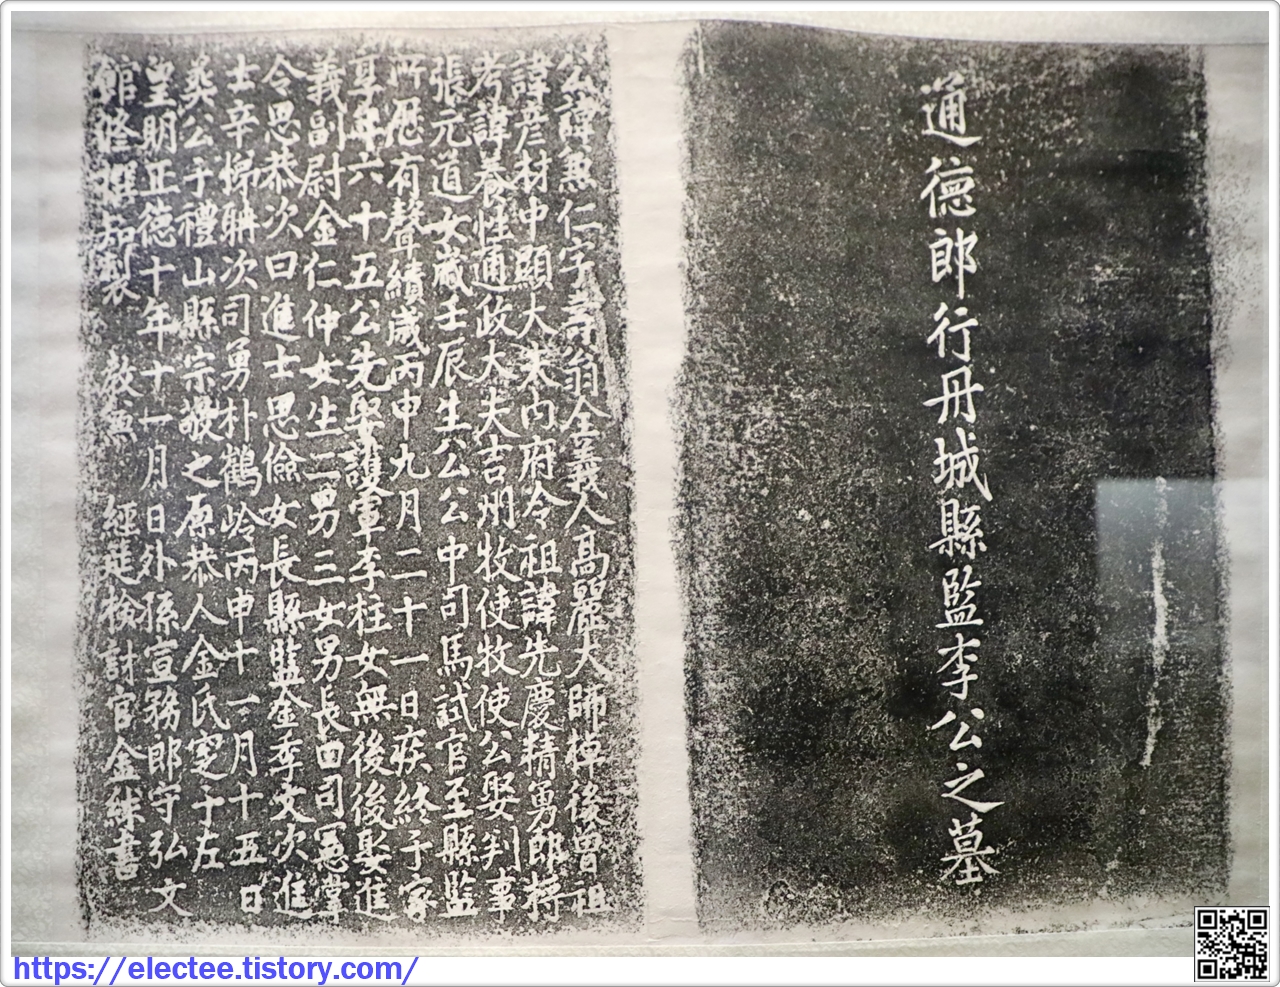 通德郎行丹城縣監李公之墓
公諱 仁字壽翁全義人高麗大師棹後曾祖
諱彦材中顯大夫內府令祖諱先慶精勇郎將
考諱養性通政大夫吉州牧使牧使公娶判事
張元道女歲壬辰生公公中司馬試官至縣監
所歷有聲績歲丙申九月二十一日疾終于家
享年六十五公先娶護軍李柱女無後後娶進
義副尉金仁仲女生二男三女男長曰司憲掌
令思恭次曰進士思儉女長縣監金季文次進
士辛悌聃次司勇朴鶴岭丙申十一月十五日
葬公于禮山縣宗敬之原恭人金氏窆于左
皇明正德十年十一月日外孫宣務郎守弘文
館修撰知製 敎兼 經筵檢討官金絿書
https://electee.tistory.com/